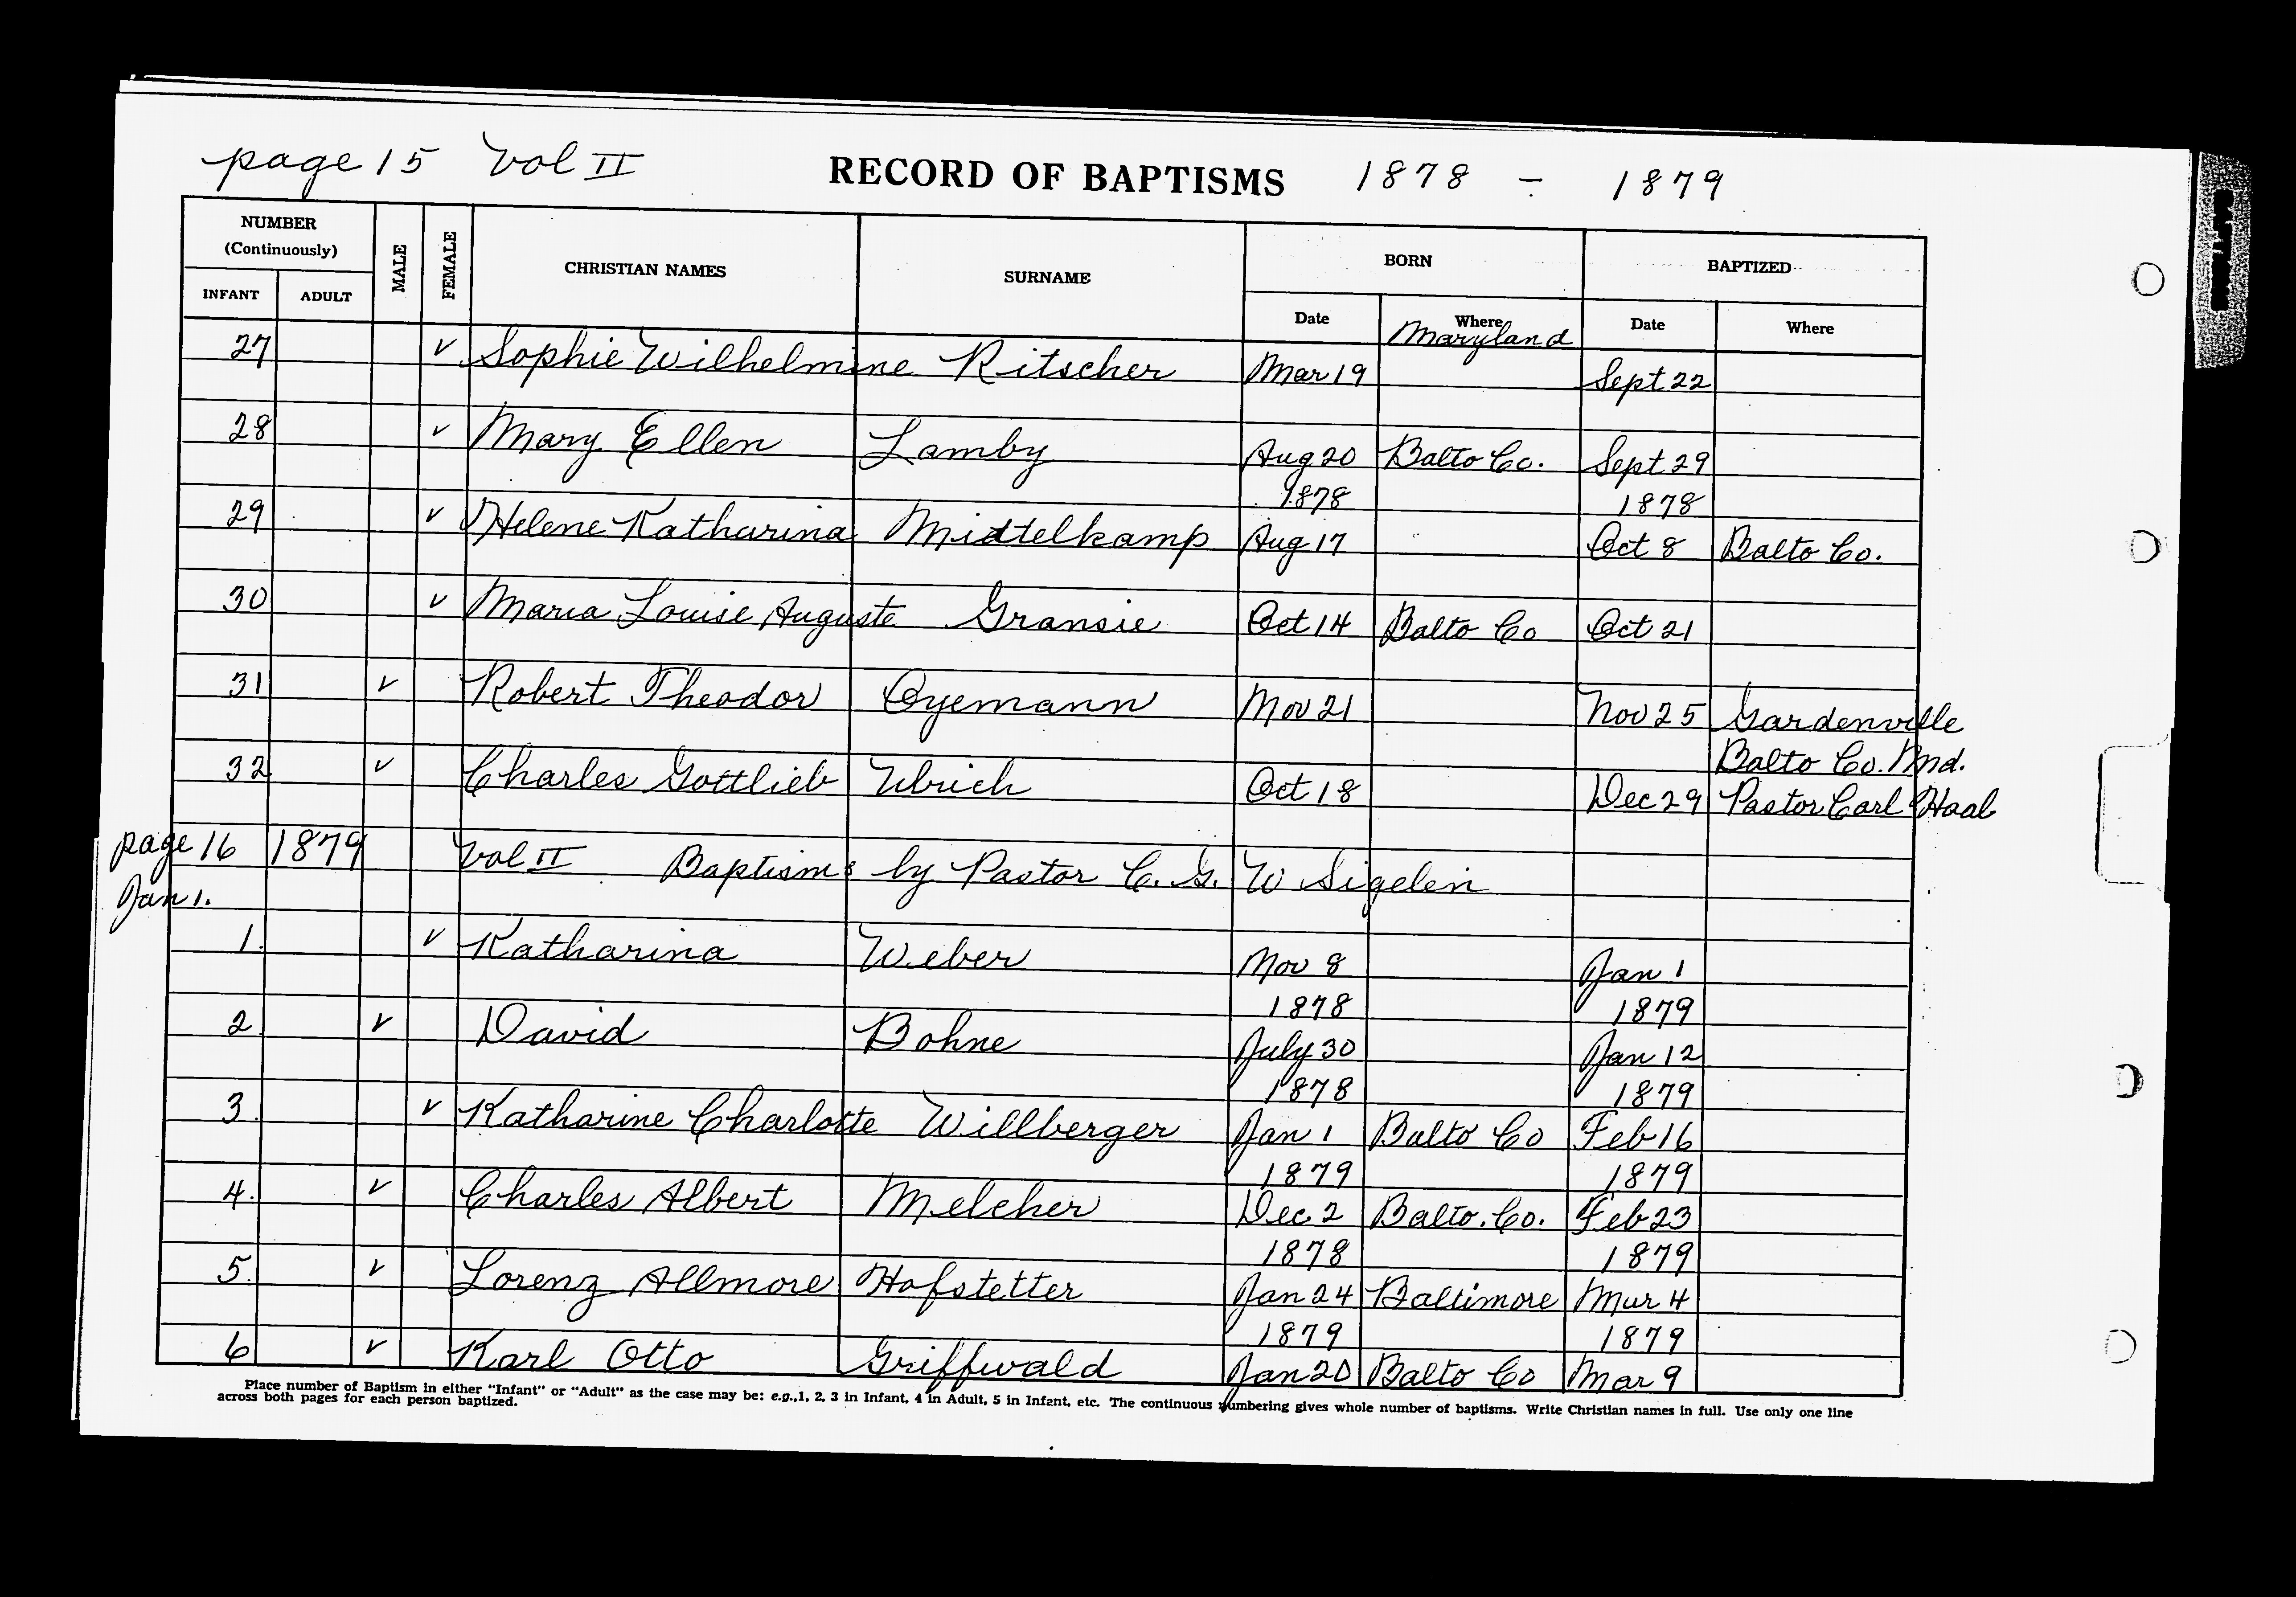 page 15 Vol II RECORD OF BAPTISMS 1878 - 1879
NUMBER (Continuously) MALE FEMALE CHRISTIAN NAMES SURNAME BORN BAPTIZED
INFANT ADULT Date Where Date Where
Maryland
27 v Sophie Wilhelmine Ritscher Mar 19 Sept 22
28 v Mary Ellen Lamby Aug 20 Balto Co. Sept 29
1878 1878
29 v Helene Katharina Mittelkamp Aug 17 Oct 8 Balto Co.
30 v Maria Louise Auguste Gransie Oct 14 Balto Co Oct 21
31 v Robert Theodor Oyemann Nov 21 Nov 25 Gardenville
Balto Co. Md.
32 v Charles Gottlieb Ulrich Oct 18 Dec 29 Pastor Carl Haal
page 16 1879 Vol II Baptisms by Pastor C. G. W Sigelen
Jan 1.
1. v Katharina Weber Nov 8 Jan 1
1878 1879
2 v David Bohne July 30 Jan 12
1878 1879
3. v Katharine Charlotte Willberger Jan 1 Balto Co Feb 16
1879 1879
4. v Charles Albert Melcher Dec 2 Balto. Co. Feb 23
1878 1879
5. v Lorenz Allmore Hofstetter Jan 24 Baltimore Mar 4
1879 1879
6 v Karl Otto Griffwald Jan 20 Balto Co Mar 9
Place number of Baptism in either "Infant" or "Adult" as the case may be: e.g.,1, 2, 3 in Infant, 4 in Adult, 5 in Infant, etc. The continuous numbering gives whole number of baptisms. Write Christian names in full. Use only one line
across both pages for each person baptized.